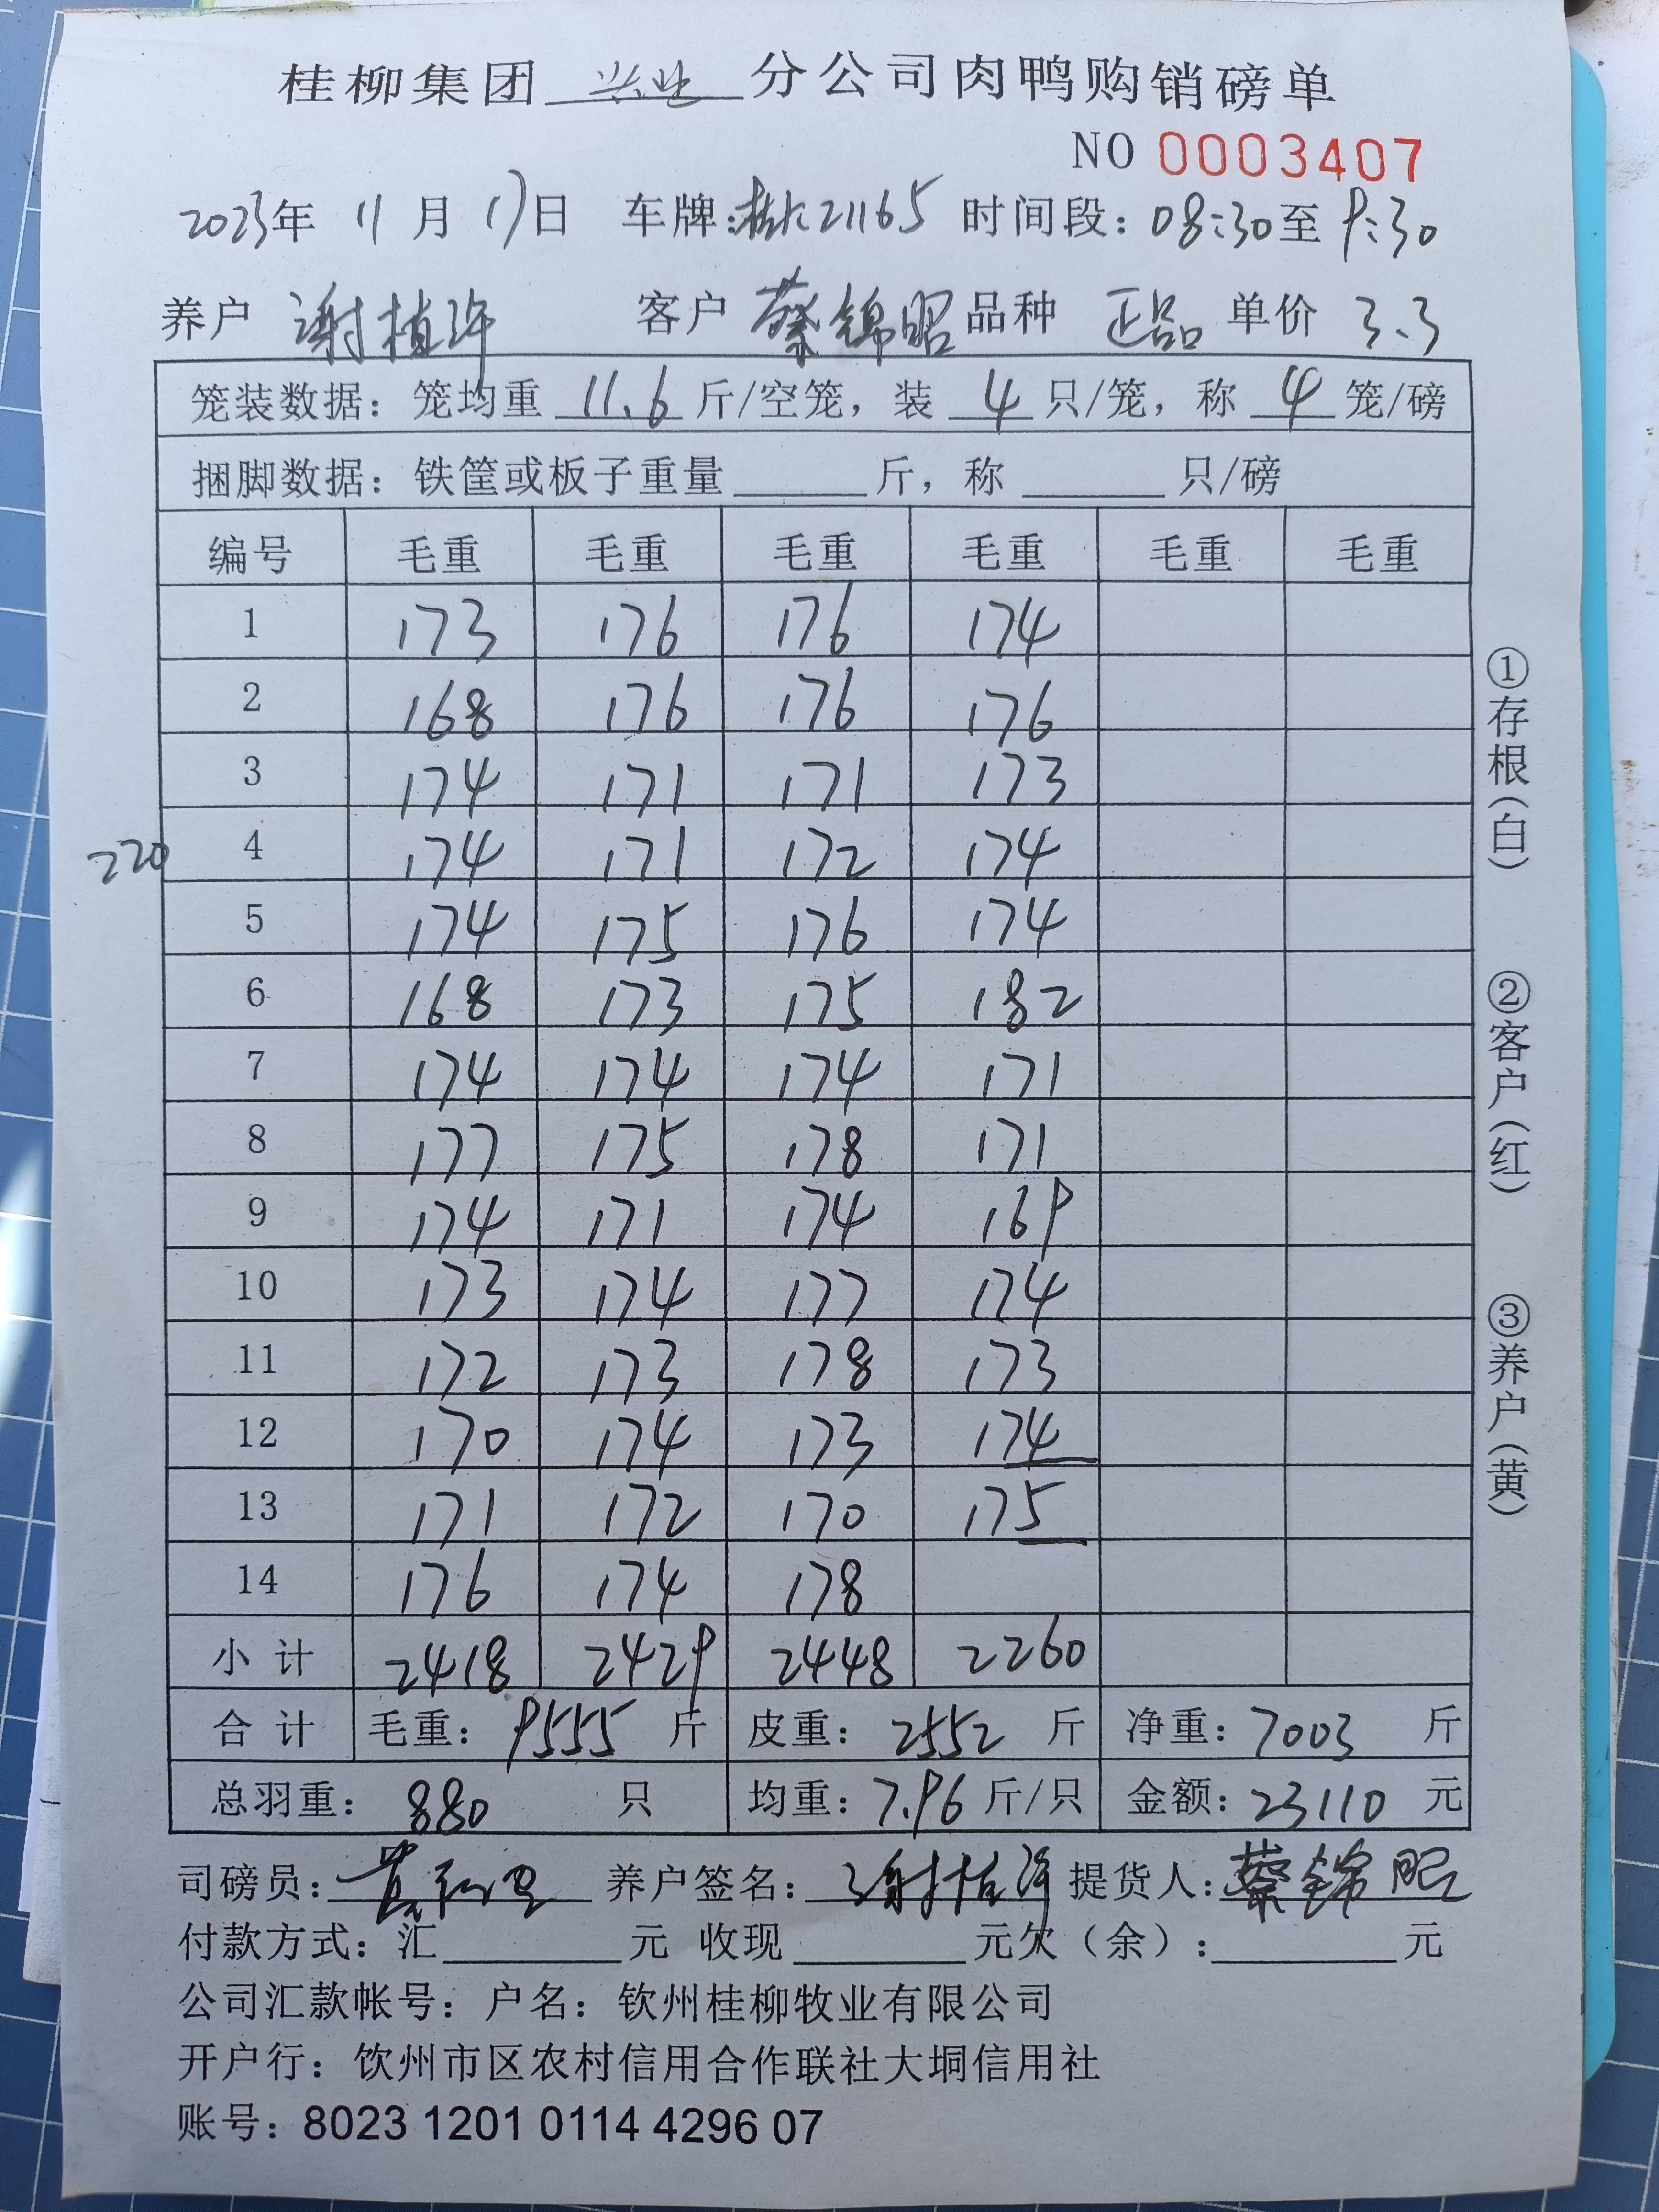 桂柳集团 兴业 分公司肉鸭购销磅单
NO 0003407
2023年 11月 17日 车牌:桂K21165 时间段:08:30至9:30
养户 谢植许 客户 蔡锦昭 品种 正品 单价 3.3
笼装数据:笼均重 11.6 斤/空笼,装 4 只/笼,称 4 笼/磅
捆脚数据:铁筐或板子重量 斤,称 只/磅
编号 毛重 毛重 毛重 毛重 毛重 毛重
1 173 176 176 174
2 168 176 176 176
3 174 171 171 173
220 4 174 171 172 174
5 174 175 176 174
6 168 173 175 182
7 174 174 174 171
8 177 175 178 171
9 174 171 174 169
10 173 174 177 174
11 172 173 178 173
12 170 174 173 174
13 171 172 170 175
14 176 174 178
小计 2418 2429 2448 2260
合计 毛重:9555 斤 皮重:2552 斤 净重:7003 斤
总羽重:880 只 均重:7.96 斤/只 金额:23110 元
司磅员: 养户签名:谢植许 提货人:蔡锦昭
付款方式:汇 元 收现 元欠(余): 元
公司汇款帐号:户名:钦州桂柳牧业有限公司
开户行:钦州市区农村信用合作联社大垌信用社
账号:8023 1201 0114 4296 07
①存根(白)
②客户(红)
③养户(黄)